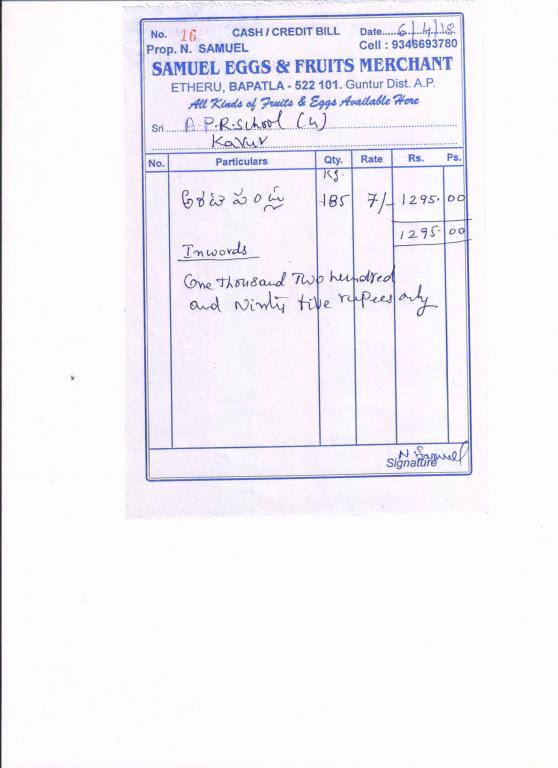 No. 16 CASH / CREDIT BILL Date.....6/4/18
Prop. N. SAMUEL Cell : 9346693780
SAMUEL EGGS & FRUITS MERCHANT
ETHERU, BAPATLA - 522 101. Guntur Dist. A.P.
All Kinds of Fruits & Eggs Available Here
Sri A P.R. School (G)
Kavur
No. Particulars Qty. Rate Rs. Ps.
Kg.
అరటి పండ్లు 185 7/- 1295. 00
1295. 00
Inwords
One Thousand Two hundred
and Ninty five rupees only
N. Samuel
Signature